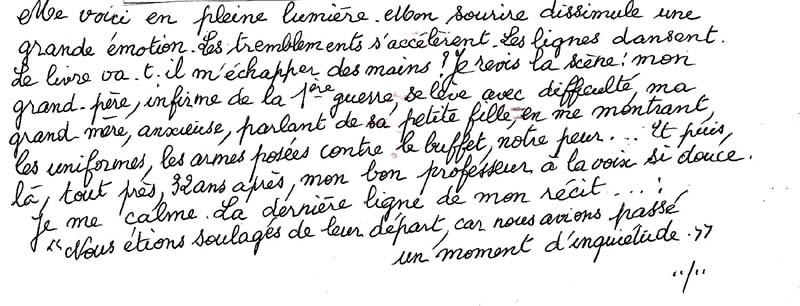 Me voici en pleine lumière. Mon sourire dissimule une
grande émotion. Les tremblements s'accélèrent. Les lignes dansent.
Le livre va.t.il m'échapper des mains? Je revis la scène: mon
grand-père, infirme de la 1ère guerre, se lève avec difficulté, ma
grand mère, anxieuse, parlant de sa petite fille, en me montrant,
les uniformes, les armes posées contre le buffet, notre peur... Et puis,
là, tout près, 32 ans après, mon bon professeur à la voix si douce.
Je me calme. La dernière ligne de mon récit....:
"Nous étions soulagés de leur départ, car nous avions passé
un moment d'inquiétude.»
"/"